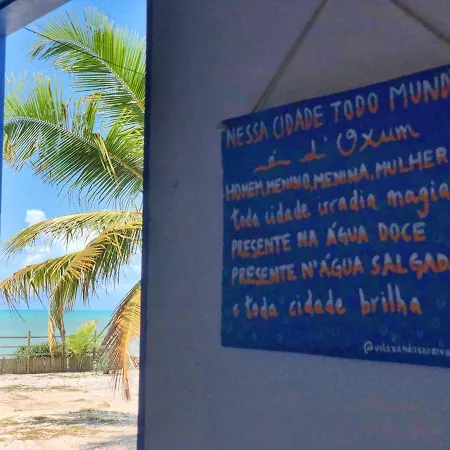 NESSA CIDADE TODO MUND
é d'Oxum
HOMEM, MENINO, MENINA, MULHER
toda cidade irradia magia
PRESENTE NA ÁGUA DOCE
PRESENTE N'ÁGUA SALGAD
e toda cidade brilha